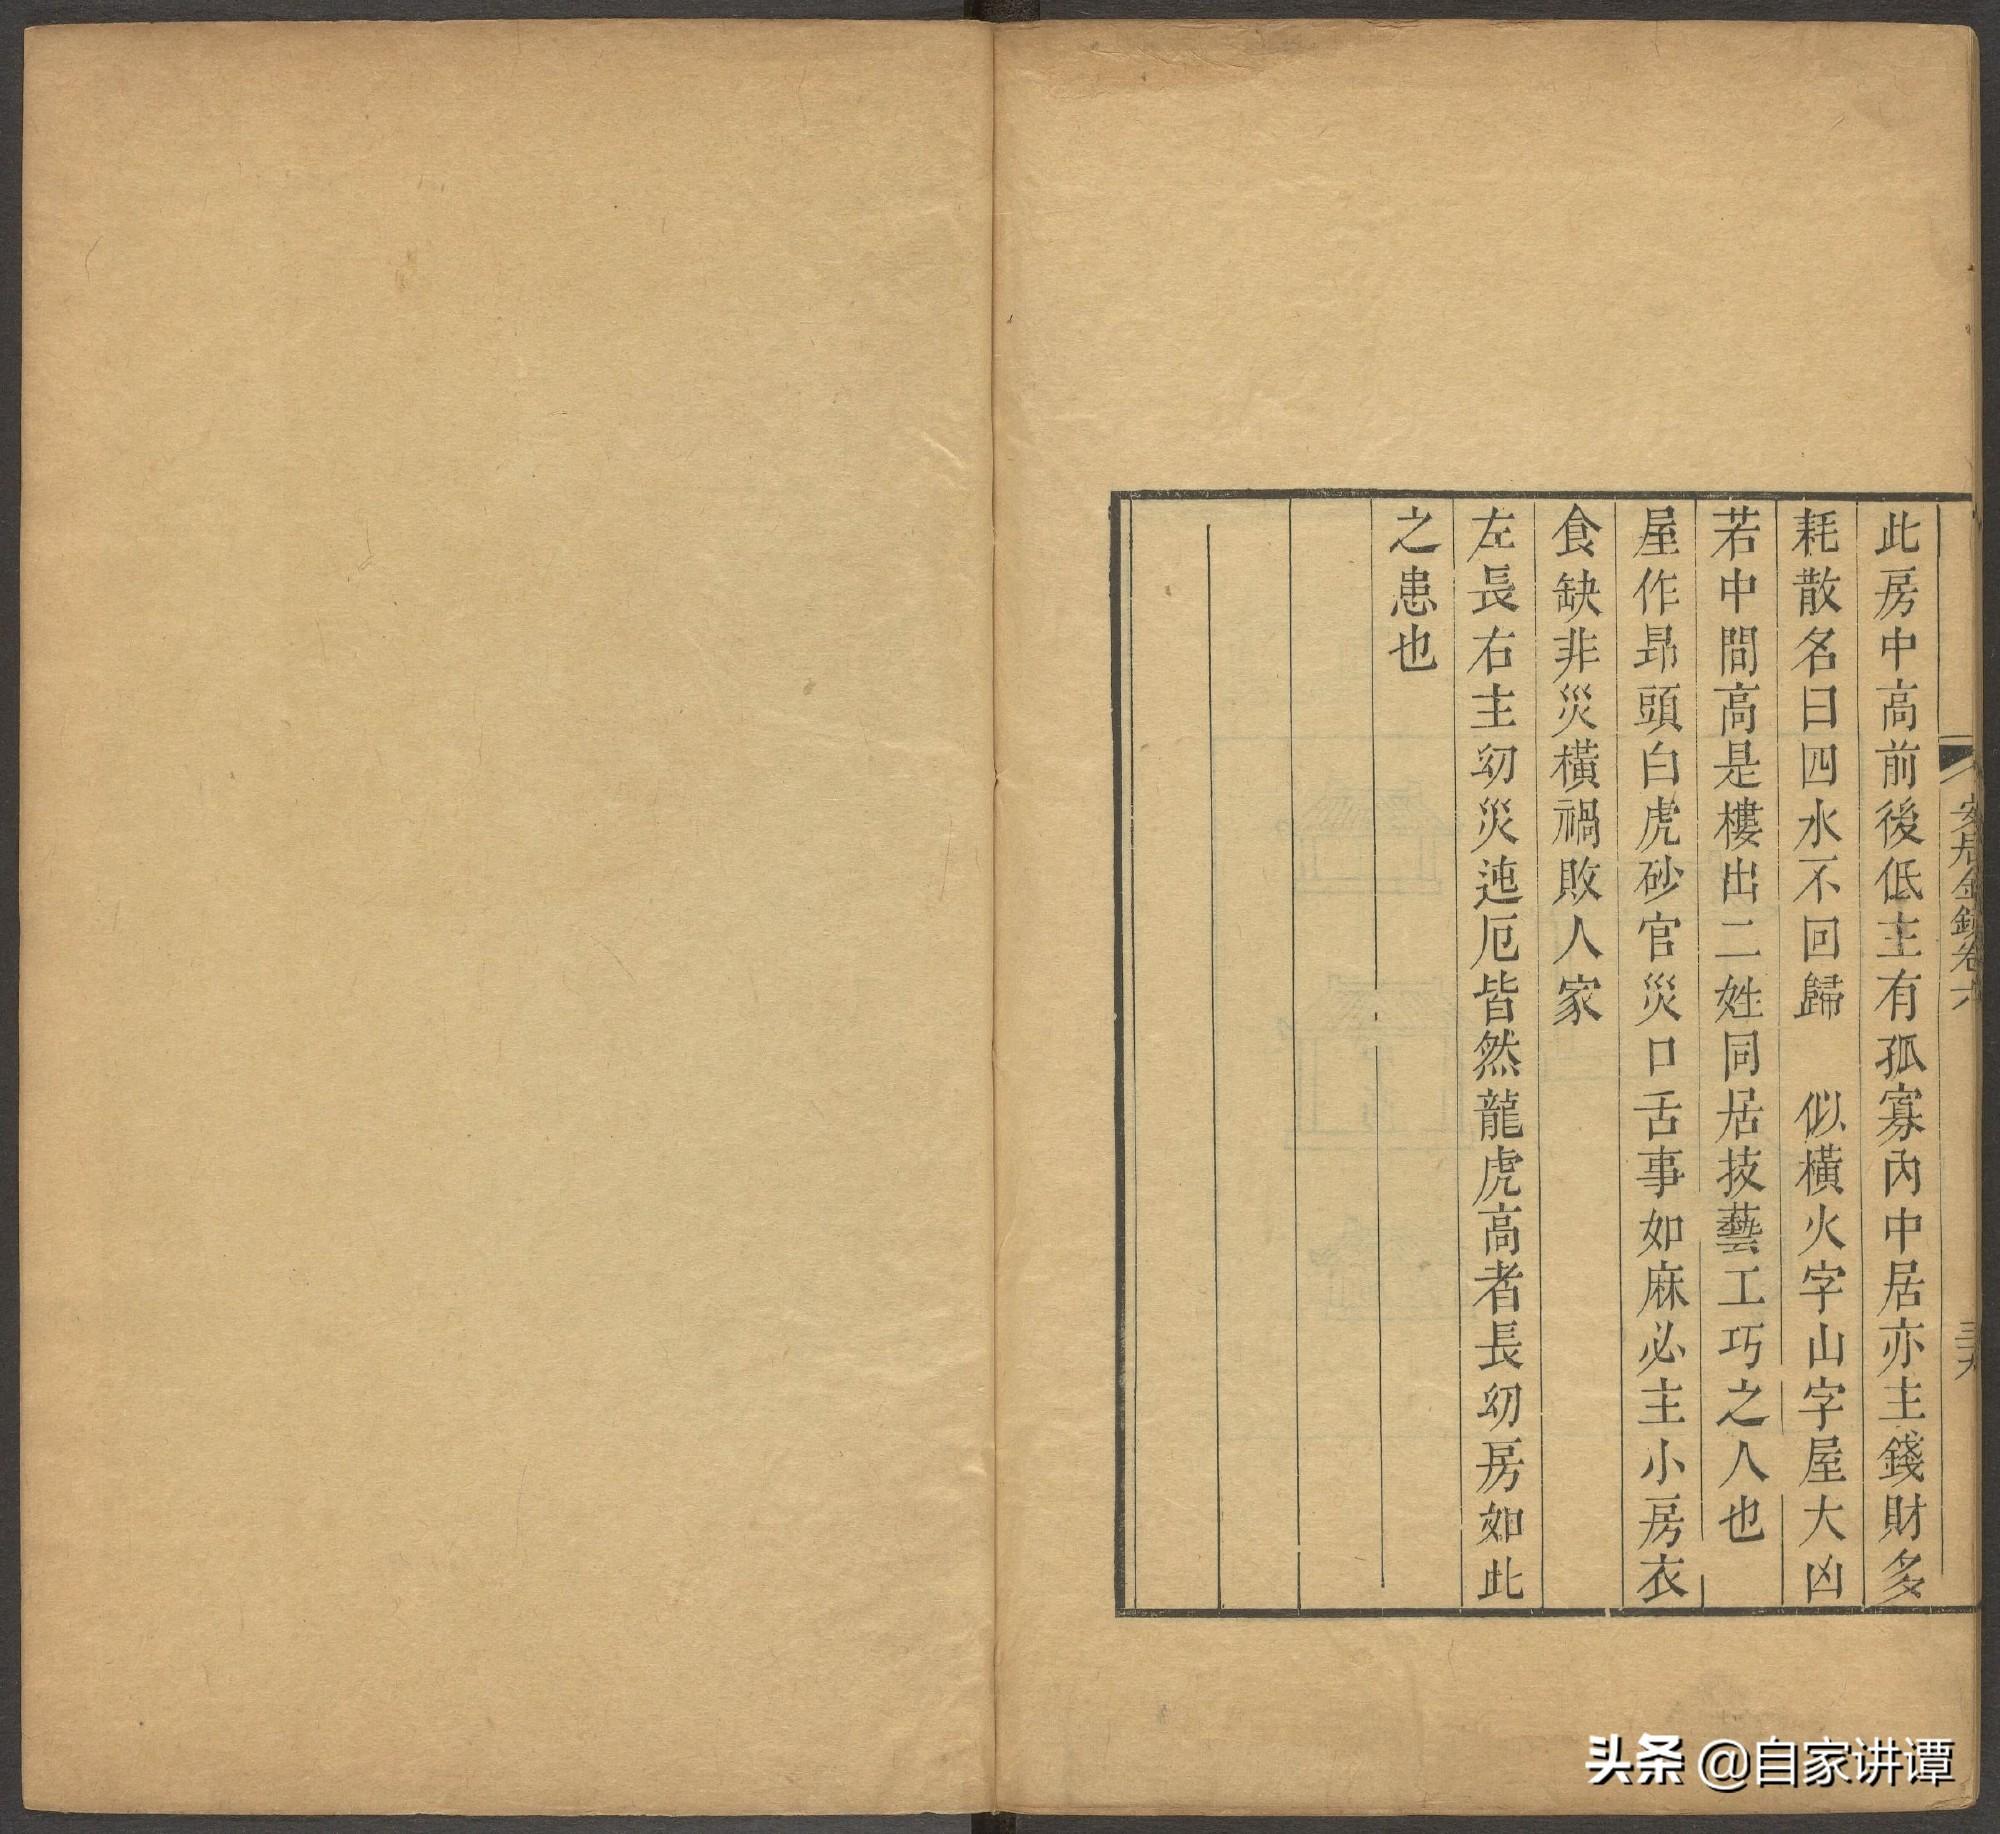 安居金鏡卷六
三九
此房中高前後低主有孤寡內中居亦主錢財多
耗散名曰四水不回歸　似橫火字山字屋大凶
若中間高是樓出二姓同居技藝工巧之人也
屋作昻頭白虎砂官災口舌事如麻必主小房衣
食缺非災橫禍敗人家
左長右主幼災迍厄皆然龍虎高者長幼房如此
之患也
头条 @自家讲谭